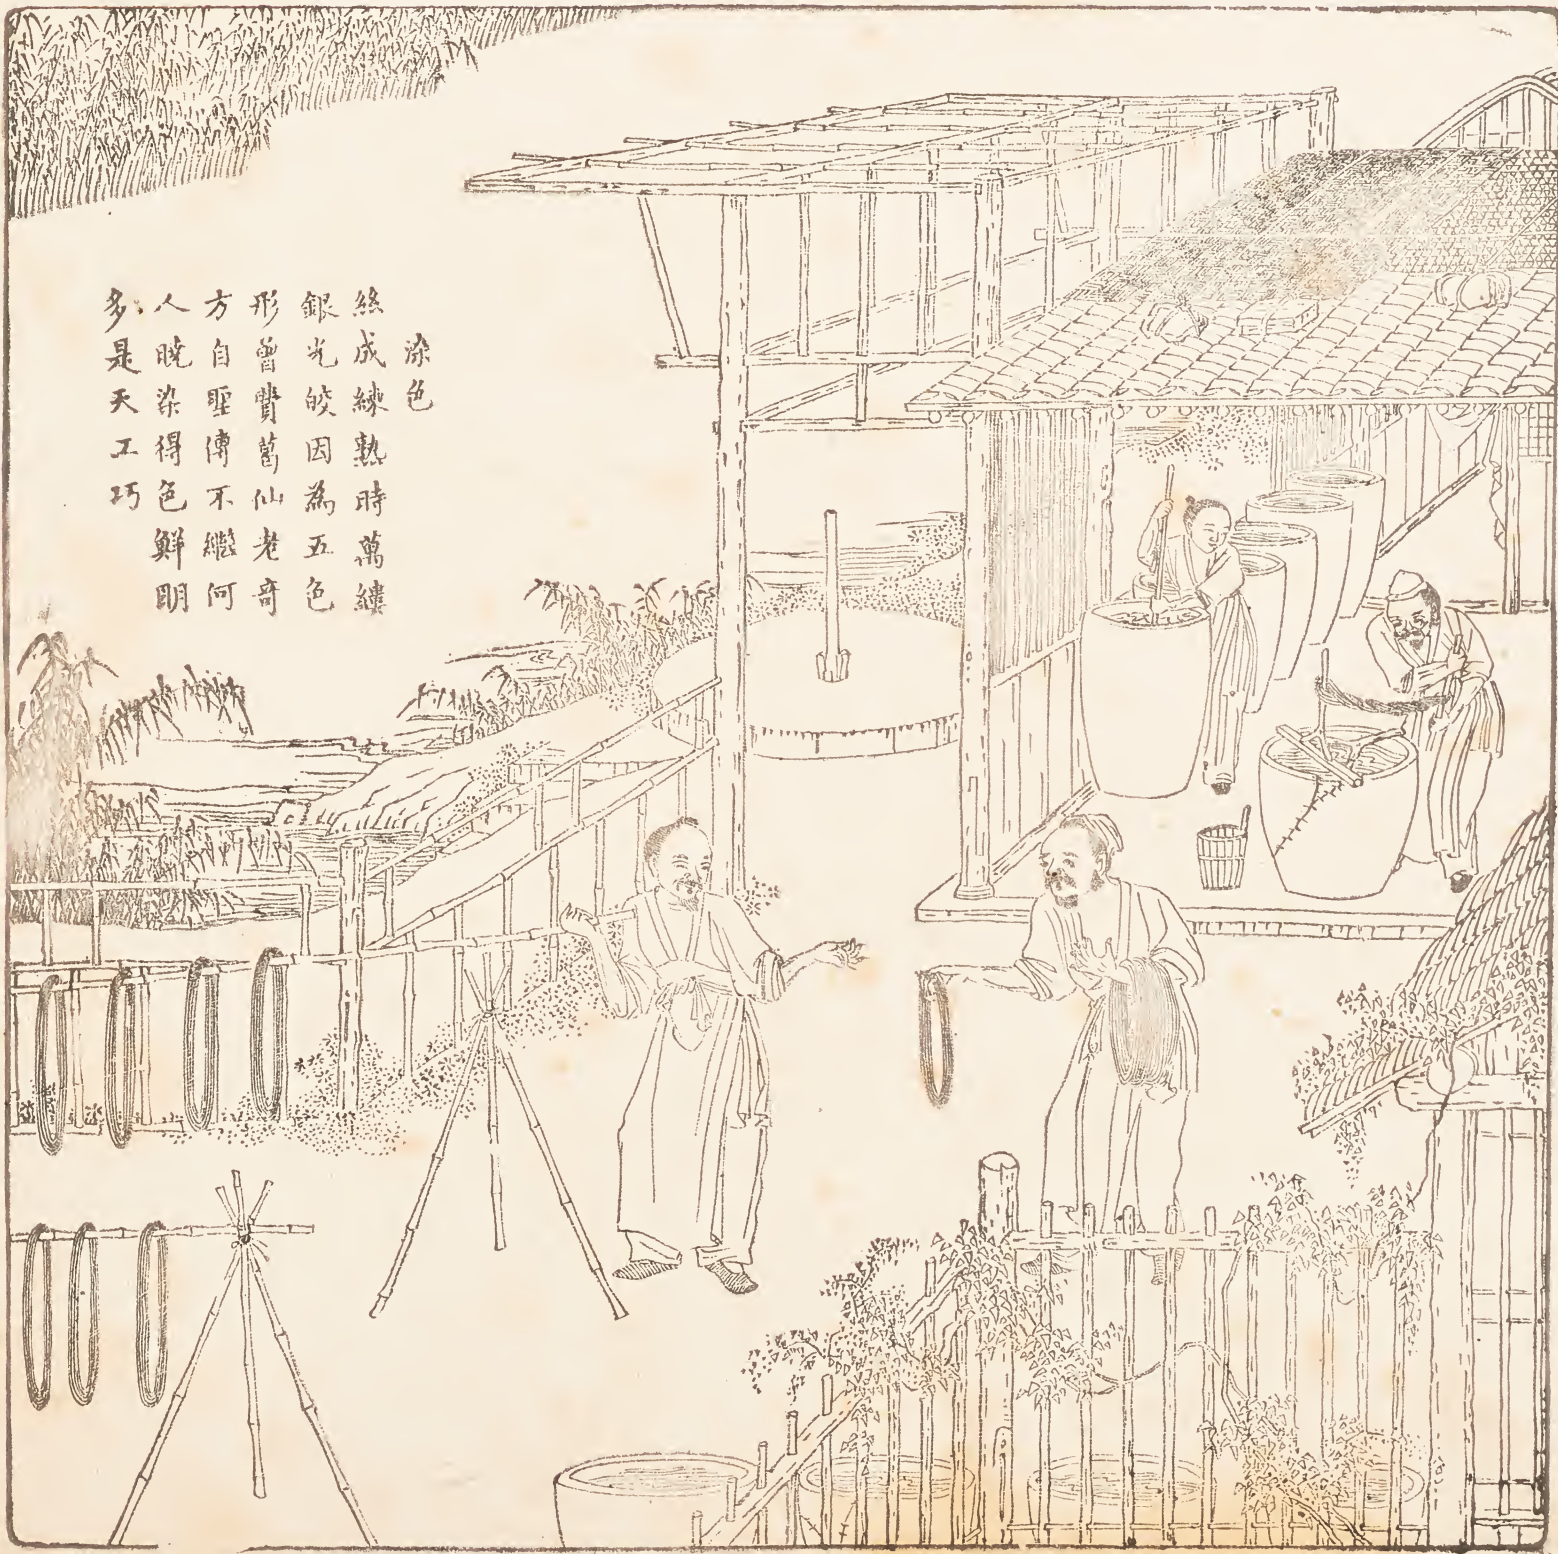 染色
絲成練熟時萬縷
銀光皎因為五色
形曾贊葛仙老奇
方自聖傳不繼何
人曉染得色鮮明
多是天工巧